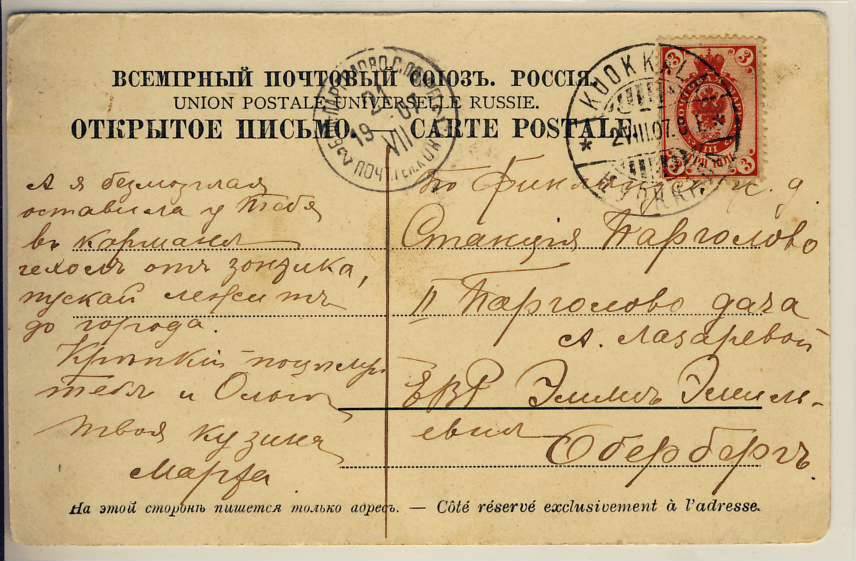 ВСЕМІРНЫЙ ПОЧТОВЫЙ СОЮЗЪ. РОССІЯ.
UNION POSTALE UNIVERSELLE RUSSIE.
ОТКРЫТОЕ ПИСЬМО. — CARTE POSTALE
KUOKKALA
21.VII.07.
21
1907
VII
3 3
3 3
А я безмозглая
оставила у тебя
въ кармане
чехолъ отъ зонтика,
пускай лежитъ
до города.
Крѣпкій поцелуй
тебѣ и Ольге,
твоя кузина
Марѳа.
По Финляндск. ж. д.
Станція Парголово
II Парголово дача
А. Лазаревой
ЕВР Эмилъ Эмиль-
евна
Обербергъ.
На этой сторонѣ пишется только адресъ. — Côté réservé exclusivement à l'adresse.